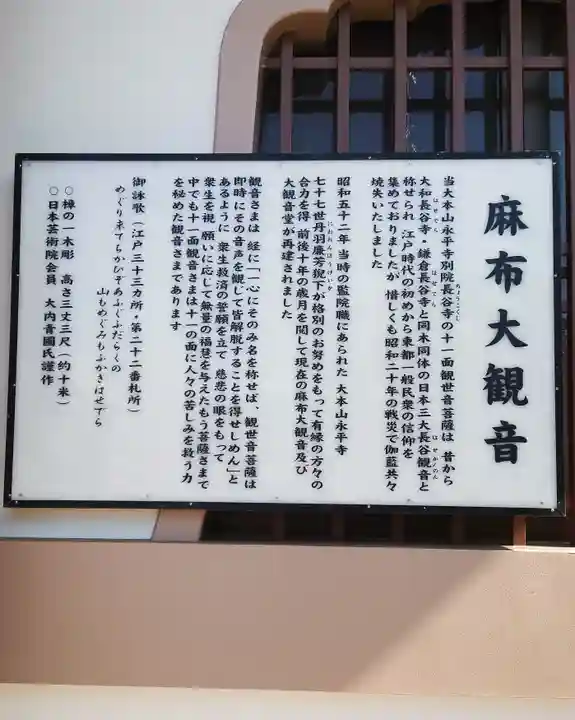 麻布大観音
当大本山永平寺別院長谷寺の十一面観世音菩薩は 昔から
大和長谷寺・鎌倉長谷寺と同木同体の日本三大長谷観音と
称せられ 江戸時代の初めから東都一般民衆の信仰を
集めておりましたが 惜しくも昭和二十年の戦災で伽藍共々
焼失いたしました
昭和五十二年 当時の監院職にあられた 大本山永平寺
七十七世丹羽廉芳猊下が格別のお努めをもって有縁の方々の
合力を得 前後十年の歳月を閲して現在の麻布大観音及び
大観音堂が再建されました
観音さまは 経に「一心にそのみ名を称せば、観世音菩薩は
即時にその音声を観して皆解脱することを得せしめん」と
あるように 衆生救済の誓願を立て 慈悲の眼をもって
衆生を視 願いに応じて無量の福慧を与えたもう菩薩さまで
中でも十一面観音さまは十一の面に人々の苦しみを救う力
を秘めた観音さまであります
御詠歌(江戸三十三カ所・第二十二番札所)
めぐり来てちかひぞあふぐふだらくの
山もめぐみもふかきはせでら
○樟の一木彫 高さ三丈三尺(約十米)
○日本芸術院会員 大内青圃氏謹作